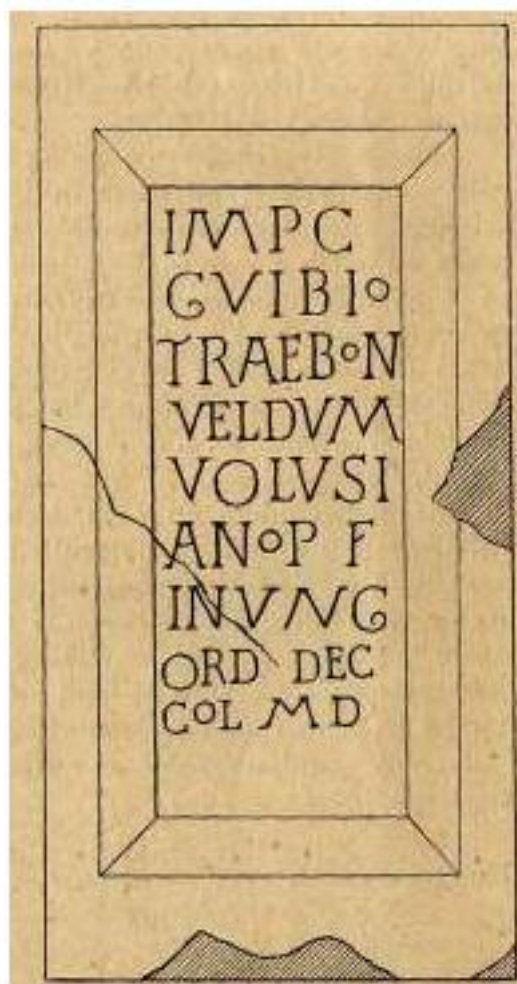 IMP C
GVIBIO
TRAEBON
VELDVM
VOLVSI
ANO P F
INVNG
ORD DEC
COL M D